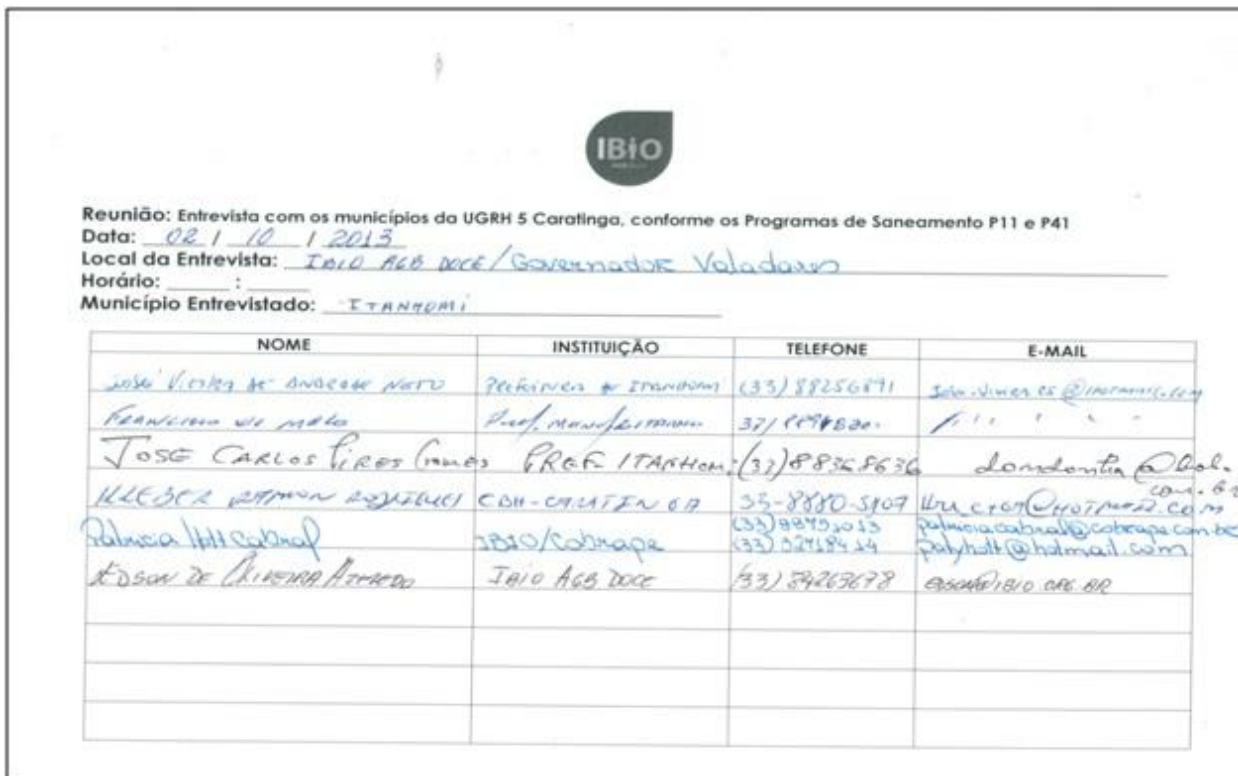 IBiO
Reunião: Entrevista com os municípios da UGRH 5 Caratinga, conforme os Programas de Saneamento P11 e P41
Data: 02 / 10 / 2013
Local da Entrevista: IBIO AGB DOCE/Governador Valadares
Horário: ____ : ____
Município Entrevistado: ITANHOMI
NOME INSTITUIÇÃO TELEFONE E-MAIL
DE ANDRADE NETO (33) 88256891
FRANCISCO DE MELO
JOSE CARLOS PIRES Gomes PREF. ITANHOMI (33) 88368636
KLEBER RAMON RODRIGUES CBH-CARATINGA 33-8880-5907 @HOTMAIL.COM
Patricia Hott Cabral IBIO/Cobrape patriciacabral@cobrape.com.br
polyhott@hotmail.com
EDSON DE OLIVEIRA AZEVEDO IBIO AGB DOCE (33) 84263678 EDSON@IBIO.ORG.BR